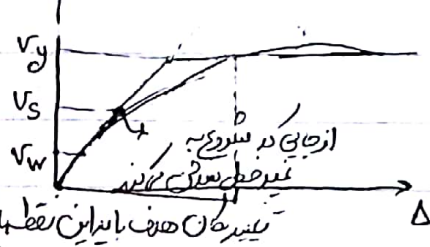 Vy
Vs
Vw
از جایی که شروع به
غیرخطی شدن می‌کند
Δ
تغییرمکان هدف باید این نقطه